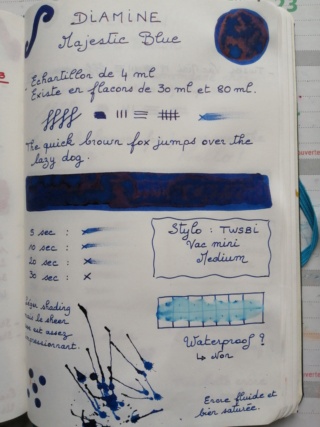 DiAMiNE
Majestic Blue
Echantillon de 4 ml
Existe en flacons de 30 ml et 80 ml.
The quick brown fox jumps over the
lazy dog.
5 sec : x
10 sec : x
20 sec : x
30 sec : x
Stylo : TWSBi
Vac mini
Medium
Léger shading
mais le sheen
est assez
impressionnant.
Waterproof ?
↳ Non
Encre fluide et
bien saturée.